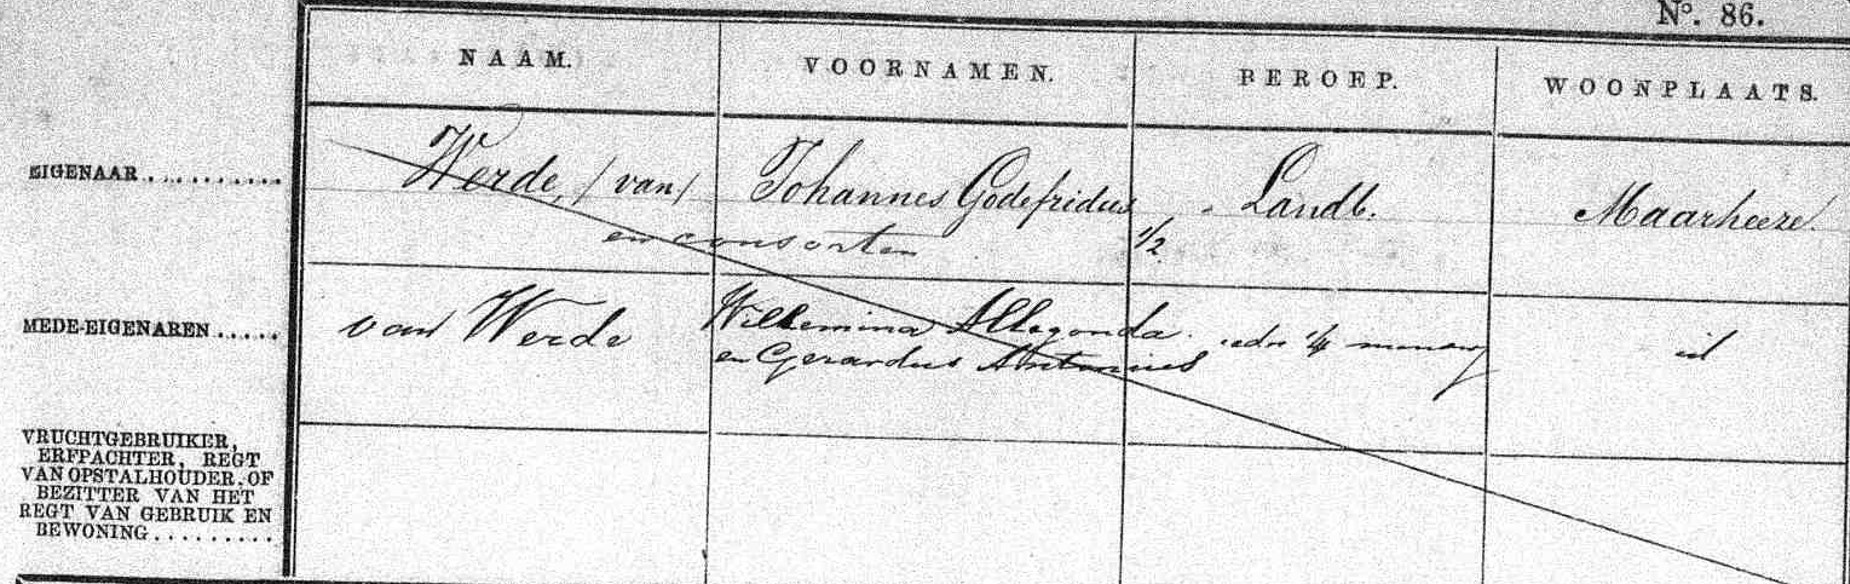 Nº. 86.
NAAM. VOORNAMEN. BEROEP. WOONPLAATS.
EIGENAAR........... Werde, /van/ Johannes Godefridus Landb. Maarheeze.
en consorten 1/2
MEDE-EIGENAREN..... van Werde Willemina Allegonda. ieder 1/4 id
en Gerardus Antonius
VRUCHTGEBRUIKER,
ERFPACHTER, REGT
VAN OPSTALHOUDER, OF
BEZITTER VAN HET
REGT VAN GEBRUIK EN
BEWONING.........